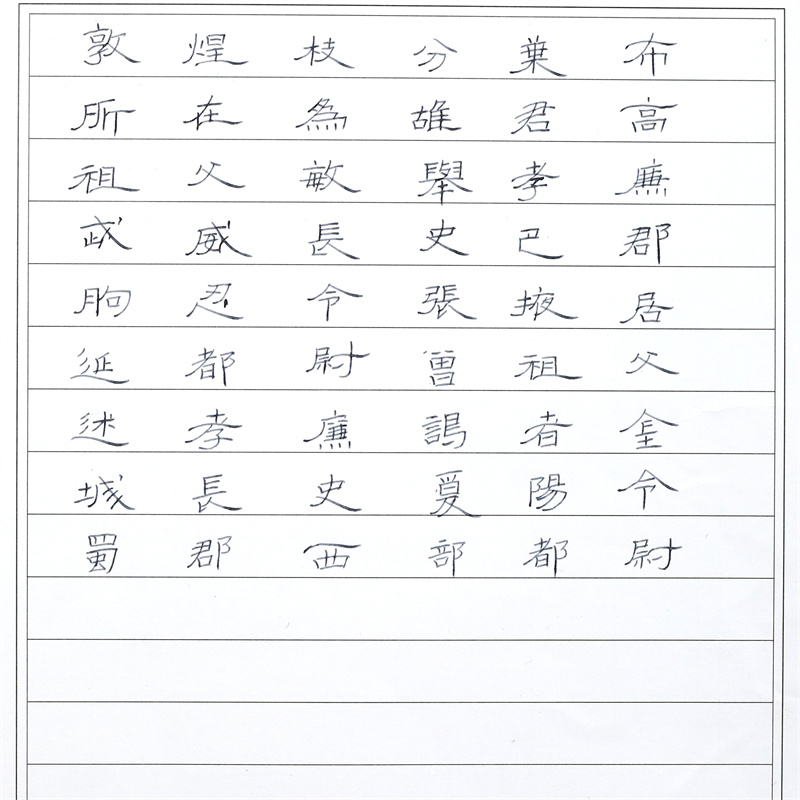 敦煌枝分葉布
所在為雄君高
祖父敏舉孝廉
武威長史巴郡
朐忍令張掖居
延都尉曾祖父
述孝廉謁者金
城長史夏陽令
蜀郡西部都尉